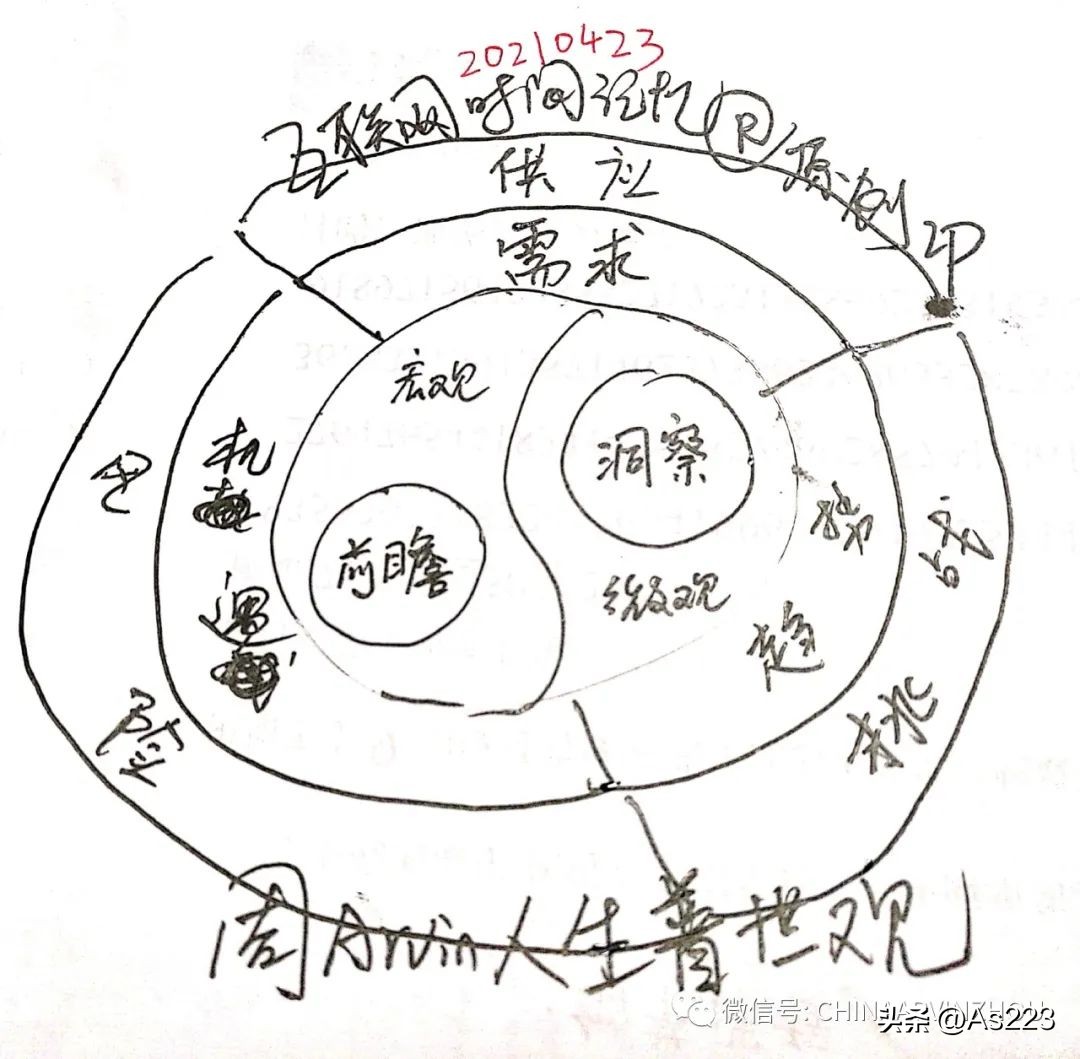 20210423
互联网时间记忆®原创IP
供应
需求
宏观
洞察
前瞻
微观
机
遇
危
险
趋
势
挑
战
周Arvin人生普世观
微信号: CHINAARVINZHOU
头条 @As223